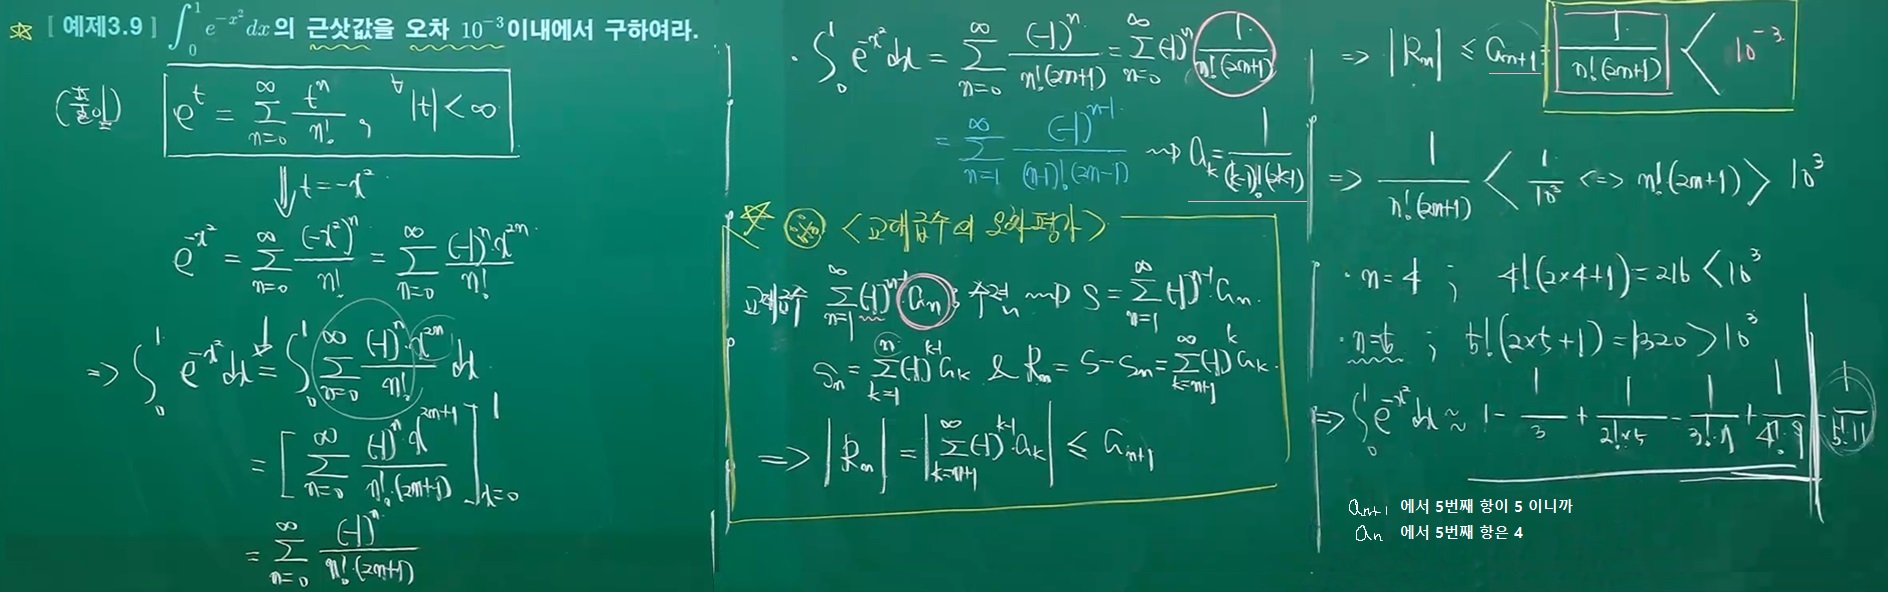 ☆ [ 예제3.9 ] ∫_0^1 e^{-x²}dx의 근삿값을 오차 10^{-3}이내에서 구하여라.
(풀이) e^t = ∑_{n=0}^∞ t^n/n! , ∀|t| < ∞
⇓ t = -x²
e^{-x²} = ∑_{n=0}^∞ (-x²)^n/n! = ∑_{n=0}^∞ (-1)^n·x^{2n}/n!
=> ∫_0^1 e^{-x²}dx = ∫_0^1 ∑_{n=0}^∞ (-1)^n·x^{2n}/n! dx
= [ ∑_{n=0}^∞ (-1)^n·x^{2n+1}/n!·(2n+1) ]_{x=0}^1
= ∑_{n=0}^∞ (-1)^n/n!·(2n+1)
· ∫_0^1 e^{-x²}dx = ∑_{n=0}^∞ (-1)^n/n!(2n+1) = ∑_{n=0}^∞ (-1)^n 1/n!(2n+1)
= ∑_{n=1}^∞ (-1)^{n-1}/(n-1)!(2n-1) ⇝ a_k = 1/(k-1)!(2k-1)
☆ ※ <교대급수의 오차평가>
교대급수 ∑_{n=1}^∞ (-1)^{n-1}·a_n ; 수렴 ⇝ S = ∑_{n=1}^∞ (-1)^{n-1}·a_n.
S_n = ∑_{k=1}^n (-1)^{k-1} a_k & R_n = S - S_n = ∑_{k=n+1}^∞ (-1)^k a_k.
=> |R_n| = |∑_{k=n+1}^∞ (-1)^{k-1} a_k| ≤ a_{n+1}
=> |R_n| ≤ a_{n+1} = 1/n!(2n+1) < 10^{-3}
=> 1/n!(2n+1) < 1/10³ <=> n!·(2n+1) > 10³
· n=4 ; 4!(2×4+1) = 216 < 10³
· n=5 ; 5!(2×5+1) = 1320 > 10³
=> ∫_0^1 e^{-x²}dx ≈ 1 - 1/3 + 1/2!×5 - 1/3!·7 + 1/4!·9 | 1/5!·11
a_{n+1} 에서 5번째 항이 5 이니까
a_n 에서 5번째 항은 4